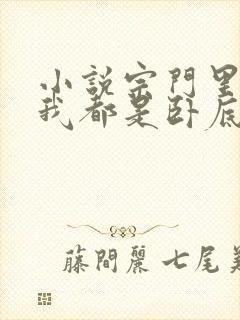 小說宗門里
我都是臥底
藤間麗 七尾美